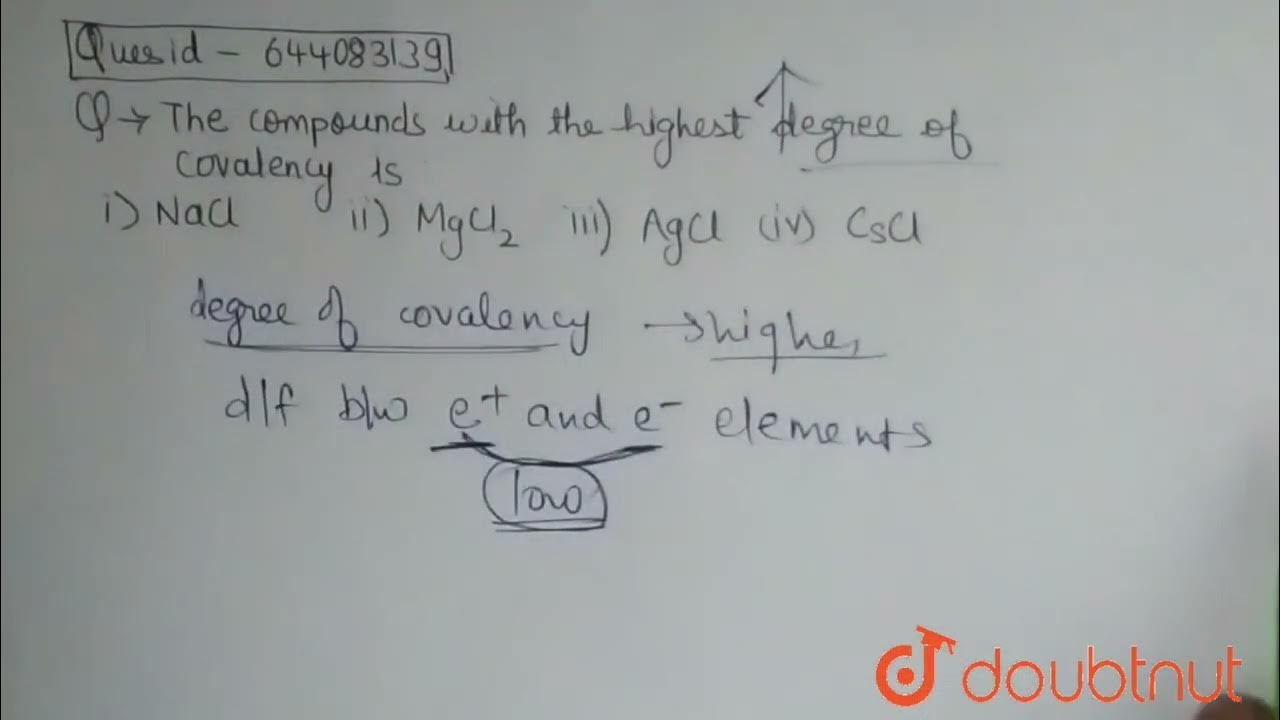 Ques id - 644083139
Q → The compounds with the highest degree of
covalency is
i) NaCl ii) MgCl₂ iii) AgCl (iv) CsCl
degree of covalency → higher
d/f b/w e⁺ and e⁻ elements
low
doubtnut